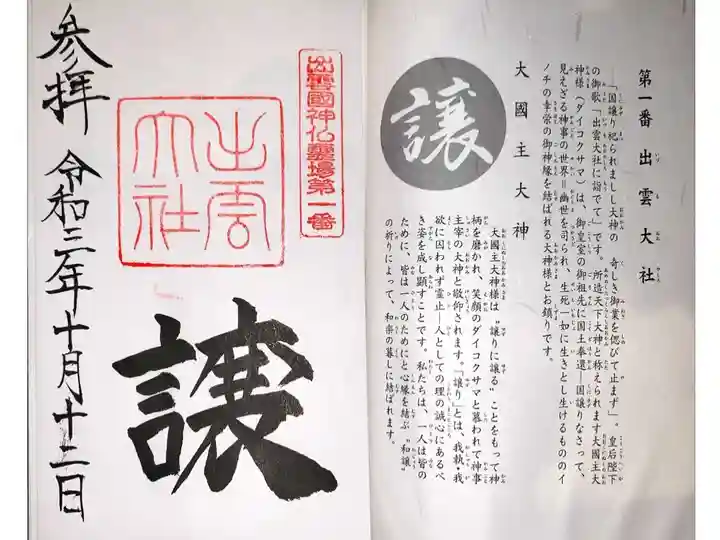 参拝 令和三年十月十二日
出雲大社
出雲國神仏霊場第一番
譲
第一番 出雲大社
―「国譲り祀られまし大神の 奇しき御業を偲びて止まず」。皇后陛下
の御歌「出雲大社に詣でて」です。所造天下大神と称えられます大國主大
神様(ダイコクサマ)は、御皇室の御祖先に国土奉還―国譲りなさって、
見えざる神事の世界=幽世を司られ、生死一如に生きとし生けるもののイ
ノチの幸栄の御神縁を結ばれる大神様とお鎮りです。
大國主大神
譲
大國主大神様は〝譲りに譲る〟ことをもって神
柄を磨かれ、笑顔のダイコクサマと慕われて神事
主宰の大神と敬仰されます。「譲り」とは、我執・我
欲に囚われず霊止―人としての理の誠心にあるべ
き姿を成し顕すことです。私たちは、一人は皆の
ために、皆は一人のためにと心縁を結ぶ〝和譲〟
の祈りによって、和楽の暮しに結ばれます。